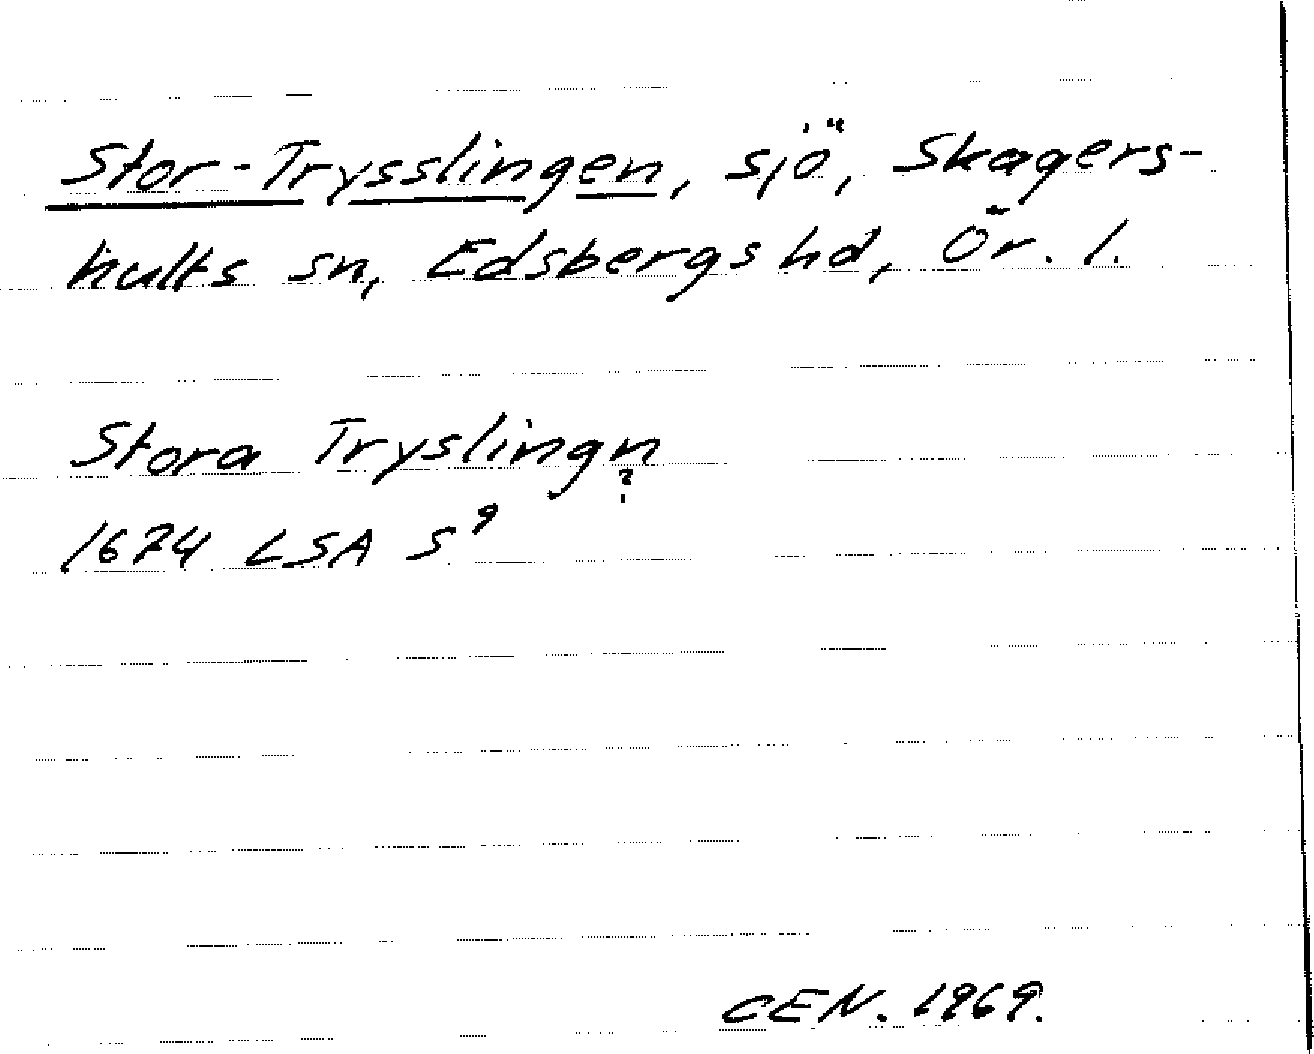 Stor-Trysslingen, sjö, Skagers-
hults sn, Edsbergs hd, Ör. l.
Stora Tryslingn
?
1674 LSA S⁹
CEN. 1969.